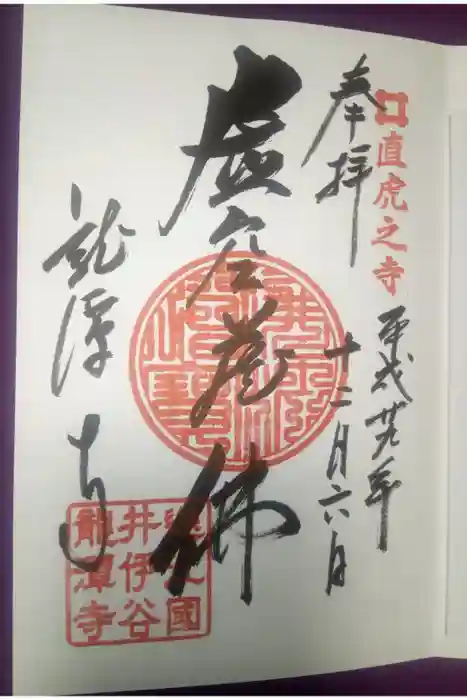 直虎之寺
奉拝
平成廿九年
十二月六日
虚空蔵佛
龍潭寺
遠江國
井伊谷
龍潭寺